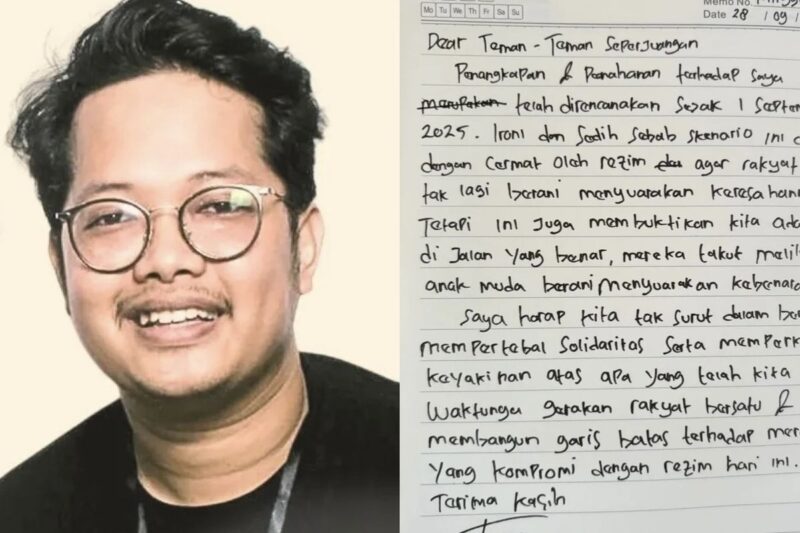 Memo No.
Mo Tu We Th Fr Sa Su
Date 28 / 09 /
Dear Teman - Teman Seperjuangan
Penangkapan & Penahanan terhadap saya
merupakan telah direncanakan Sejak 1 Septem
2025. Ironi dan Sedih Sebab Skenario ini d
dengan Cermat oleh rezim agar rakyat
tak lagi berani menyuarakan keresahann
Tetapi ini Juga membuktikan kita ada
di Jalan yang benar, mereka takut melih
anak muda berani menyuarakan kebenara
Saya harap kita tak surut dalam be
mempertebal Solidaritas Serta memperk
keyakinan atas apa yang telah kita
Waktunya gerakan rakyat bersatu &
membangun garis batas terhadap mer
yang kompromi dengan rezim hari ini.
Terima kasih